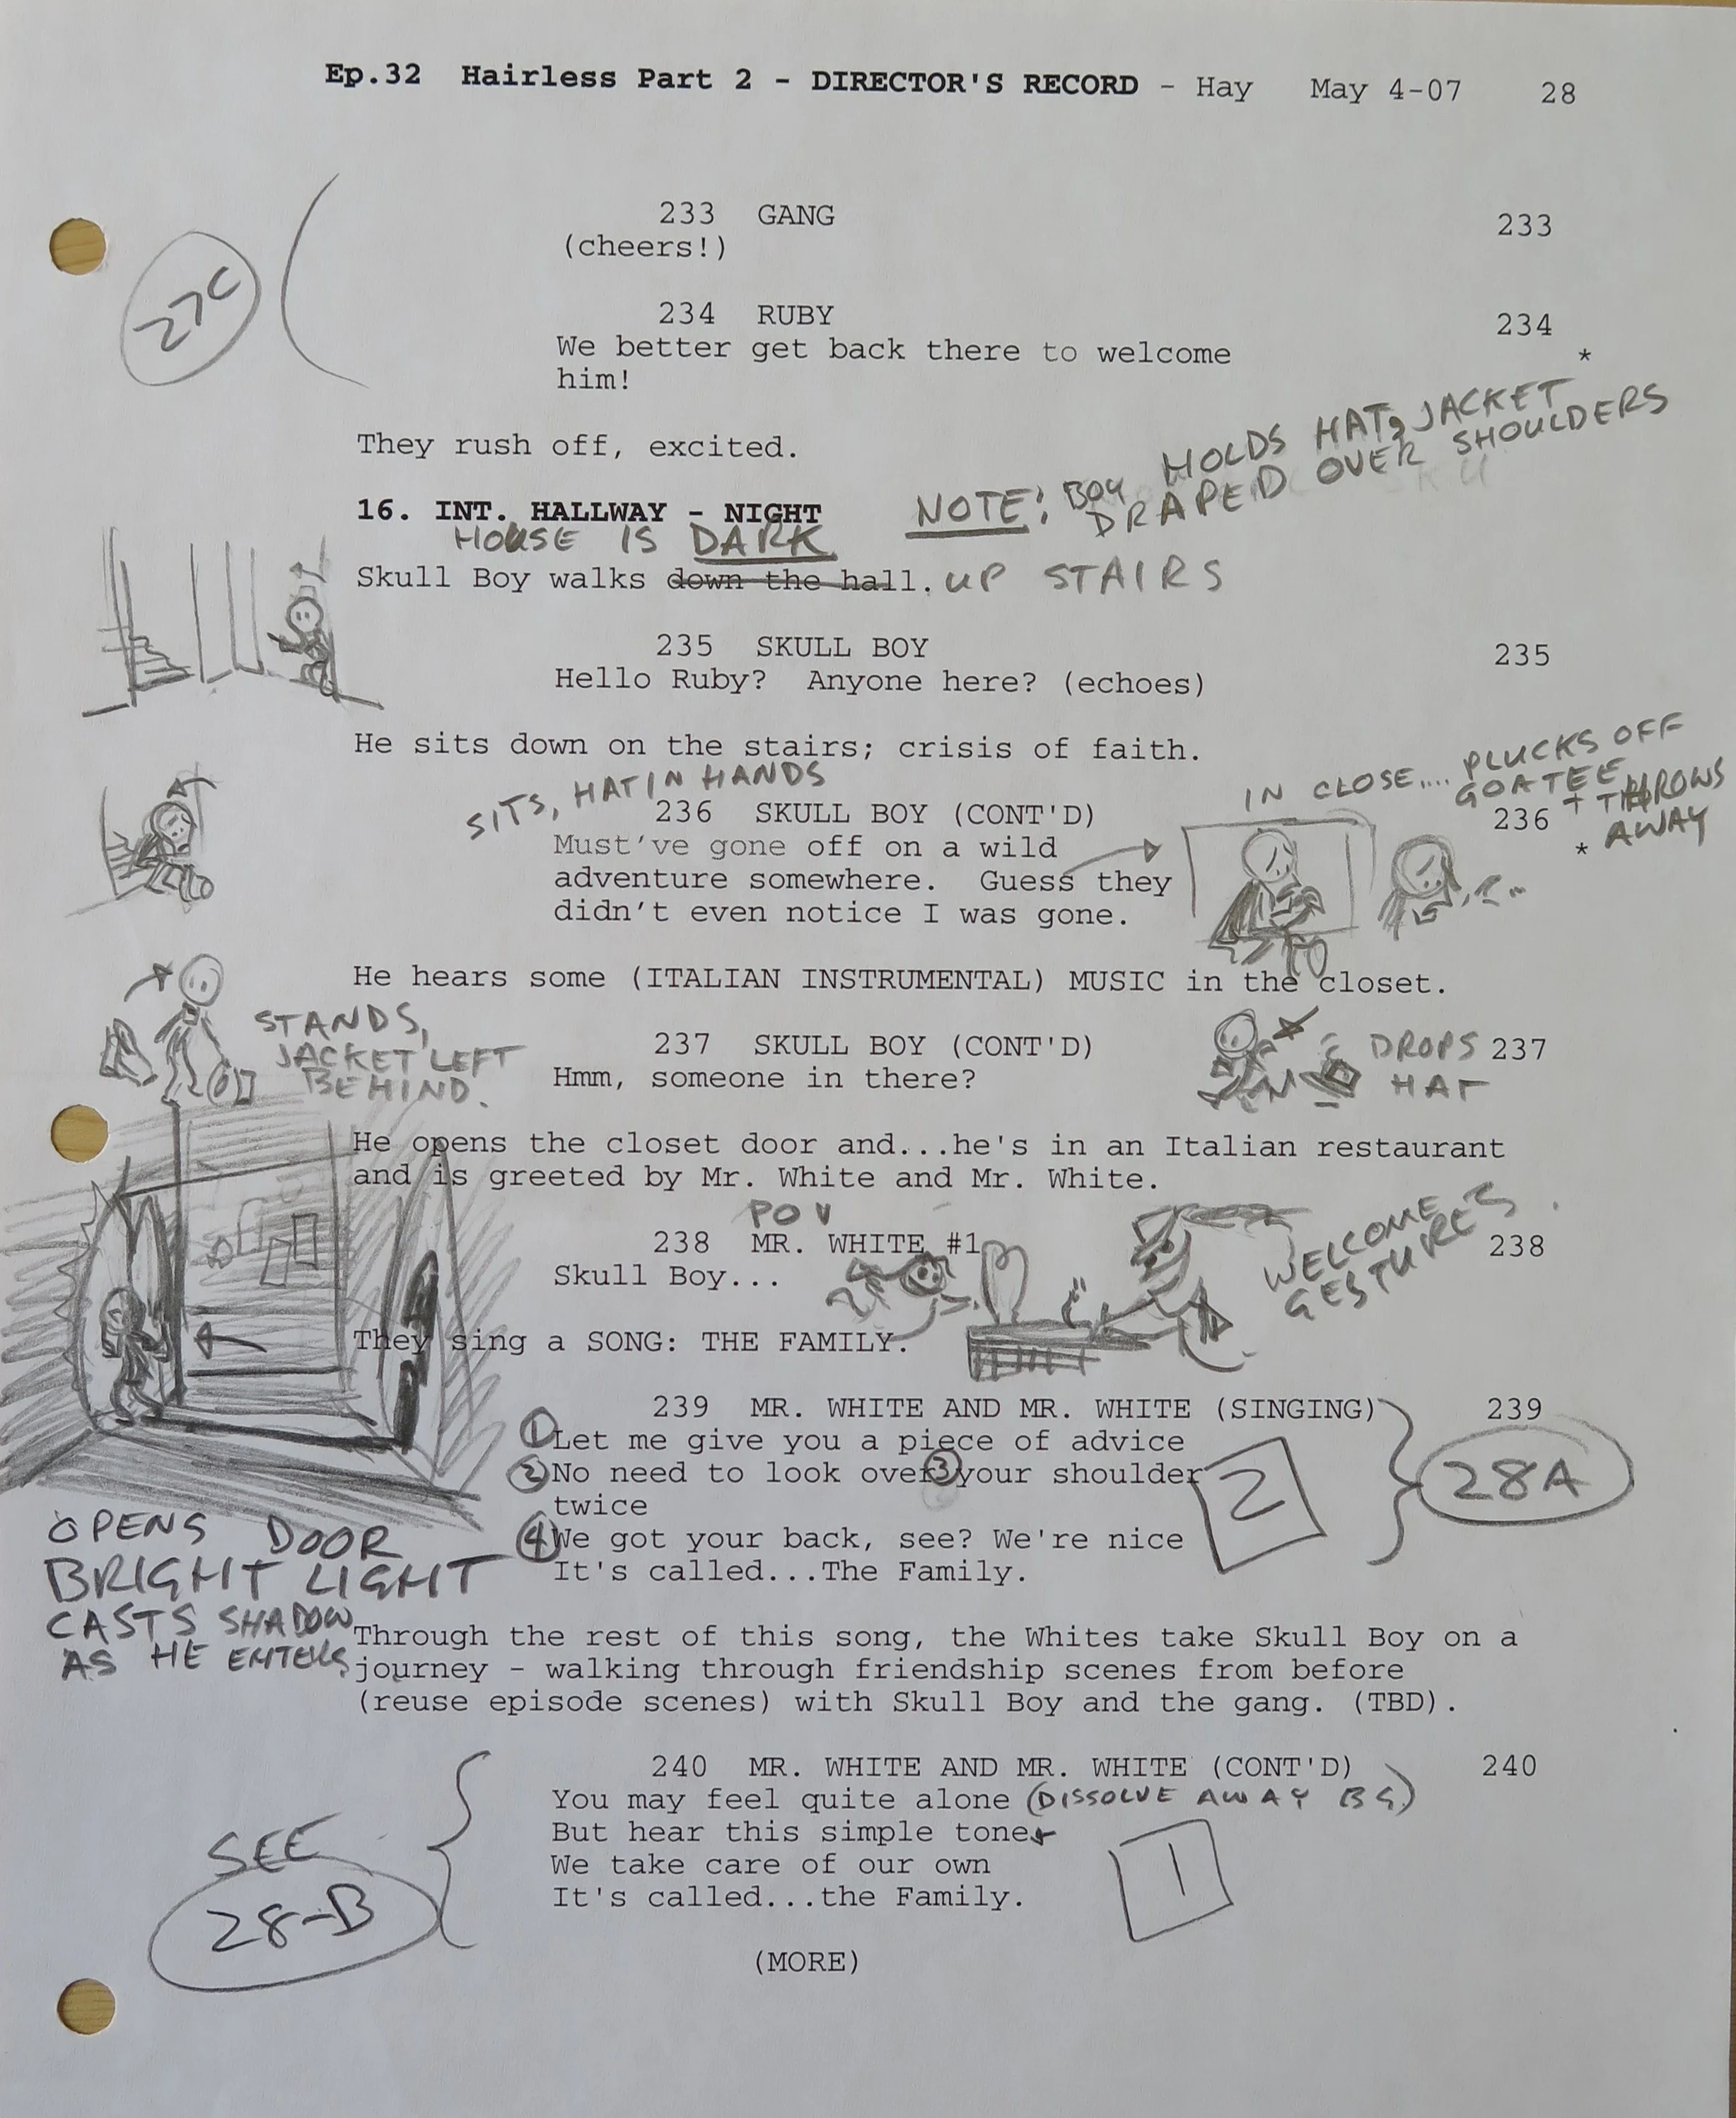 Ep.32  Hairless Part 2 - DIRECTOR'S RECORD - Hay   May 4-07   28
233  GANG 233
(cheers!)
27C
234  RUBY 234
We better get back there to welcome *
him!
They rush off, excited.
NOTE: BOY HOLDS HAT, JACKET
DRAPED OVER SHOULDERS
16. INT. HALLWAY - NIGHT
HOUSE IS DARK
Skull Boy walks down the hall. UP STAIRS
235  SKULL BOY 235
Hello Ruby?  Anyone here? (echoes)
He sits down on the stairs; crisis of faith.
SITS, HAT IN HANDS
IN CLOSE.... PLUCKS OFF
GOATEE
+ THROWS
AWAY
236  SKULL BOY (CONT'D) 236
Must've gone off on a wild *
adventure somewhere.  Guess they
didn't even notice I was gone.
He hears some (ITALIAN INSTRUMENTAL) MUSIC in the closet.
STANDS,
JACKET LEFT
BEHIND.
237  SKULL BOY (CONT'D) 237
Hmm, someone in there?
DROPS
HAT
He opens the closet door and...he's in an Italian restaurant
and is greeted by Mr. White and Mr. White.
POV
238  MR. WHITE #1 238
Skull Boy...
WELCOME
GESTURES
They sing a SONG: THE FAMILY.
239  MR. WHITE AND MR. WHITE (SINGING) 239
① Let me give you a piece of advice
② No need to look over ③ your shoulder
twice
④ We got your back, see? We're nice
It's called...The Family.
2
28A
OPENS DOOR
BRIGHT LIGHT
CASTS SHADOW
AS HE ENTERS
Through the rest of this song, the Whites take Skull Boy on a
journey - walking through friendship scenes from before
(reuse episode scenes) with Skull Boy and the gang. (TBD).
240  MR. WHITE AND MR. WHITE (CONT'D) 240
You may feel quite alone (DISSOLVE AWAY BG)
But hear this simple tone
We take care of our own
It's called...the Family.
1
SEE
28-B
(MORE)